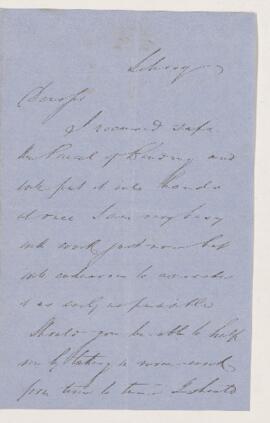 I received safe
the Parcel of Binding and
will put it into hands
at once I am very busy
with work just now but
will endeavour to
it as early as possible
Should you be able to help
me by taking in some work
from time to time I should